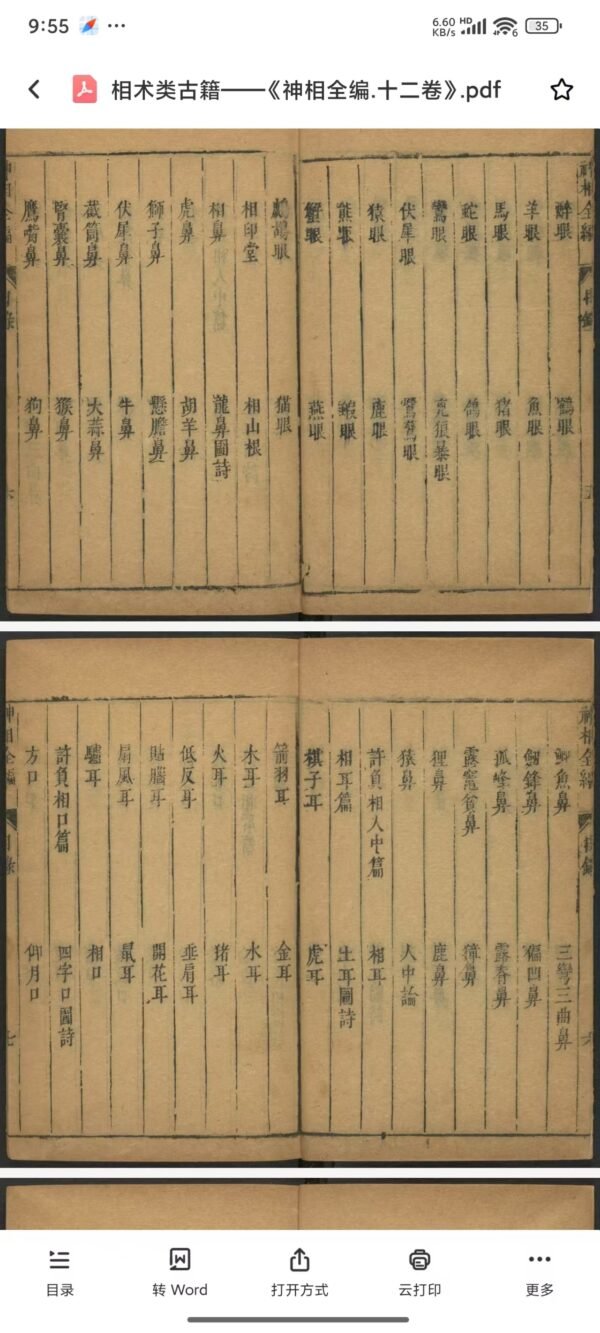 9:55
6.60 KB/s
HD
6
35
相术类古籍——《神相全编.十二卷》.pdf
神相全編
目錄
五
醉眼
鶴眼
羊眼
魚眼
馬眼
猪眼
蛇眼
鴿眼
鸞眼
虎狼暴眼
伏犀眼
鴛鴦眼
猿眼
鹿眼
熊眼
蝦眼
蟹眼
燕眼
鷓鴣眼
猫眼
相印堂
相山根
相鼻
龍鼻圖詩
虎鼻
胡羊鼻
獅子鼻
懸膽鼻
伏犀鼻
牛鼻
截筒鼻
大蒜鼻
腎囊鼻
猴鼻
鷹嘴鼻
狗鼻
神相全編
目錄
六
神相全編
目錄
六
鯽魚鼻
三彎三曲鼻
劍鋒鼻
偏凹鼻
孤峰鼻
露脊鼻
露竅貧鼻
獐鼻
狸鼻
鹿鼻
猿鼻
人中論
許負相人中篇
相耳
相耳篇
土耳圖詩
棋子耳
虎耳
箭羽耳
金耳
木耳
水耳
火耳
猪耳
低反耳
垂肩耳
貼腦耳
開花耳
扇風耳
鼠耳
驢耳
相口
許負相口篇
四字口圖詩
方口
仰月口
神相全編
目錄
七
目录
转 Word
打开方式
云打印
更多